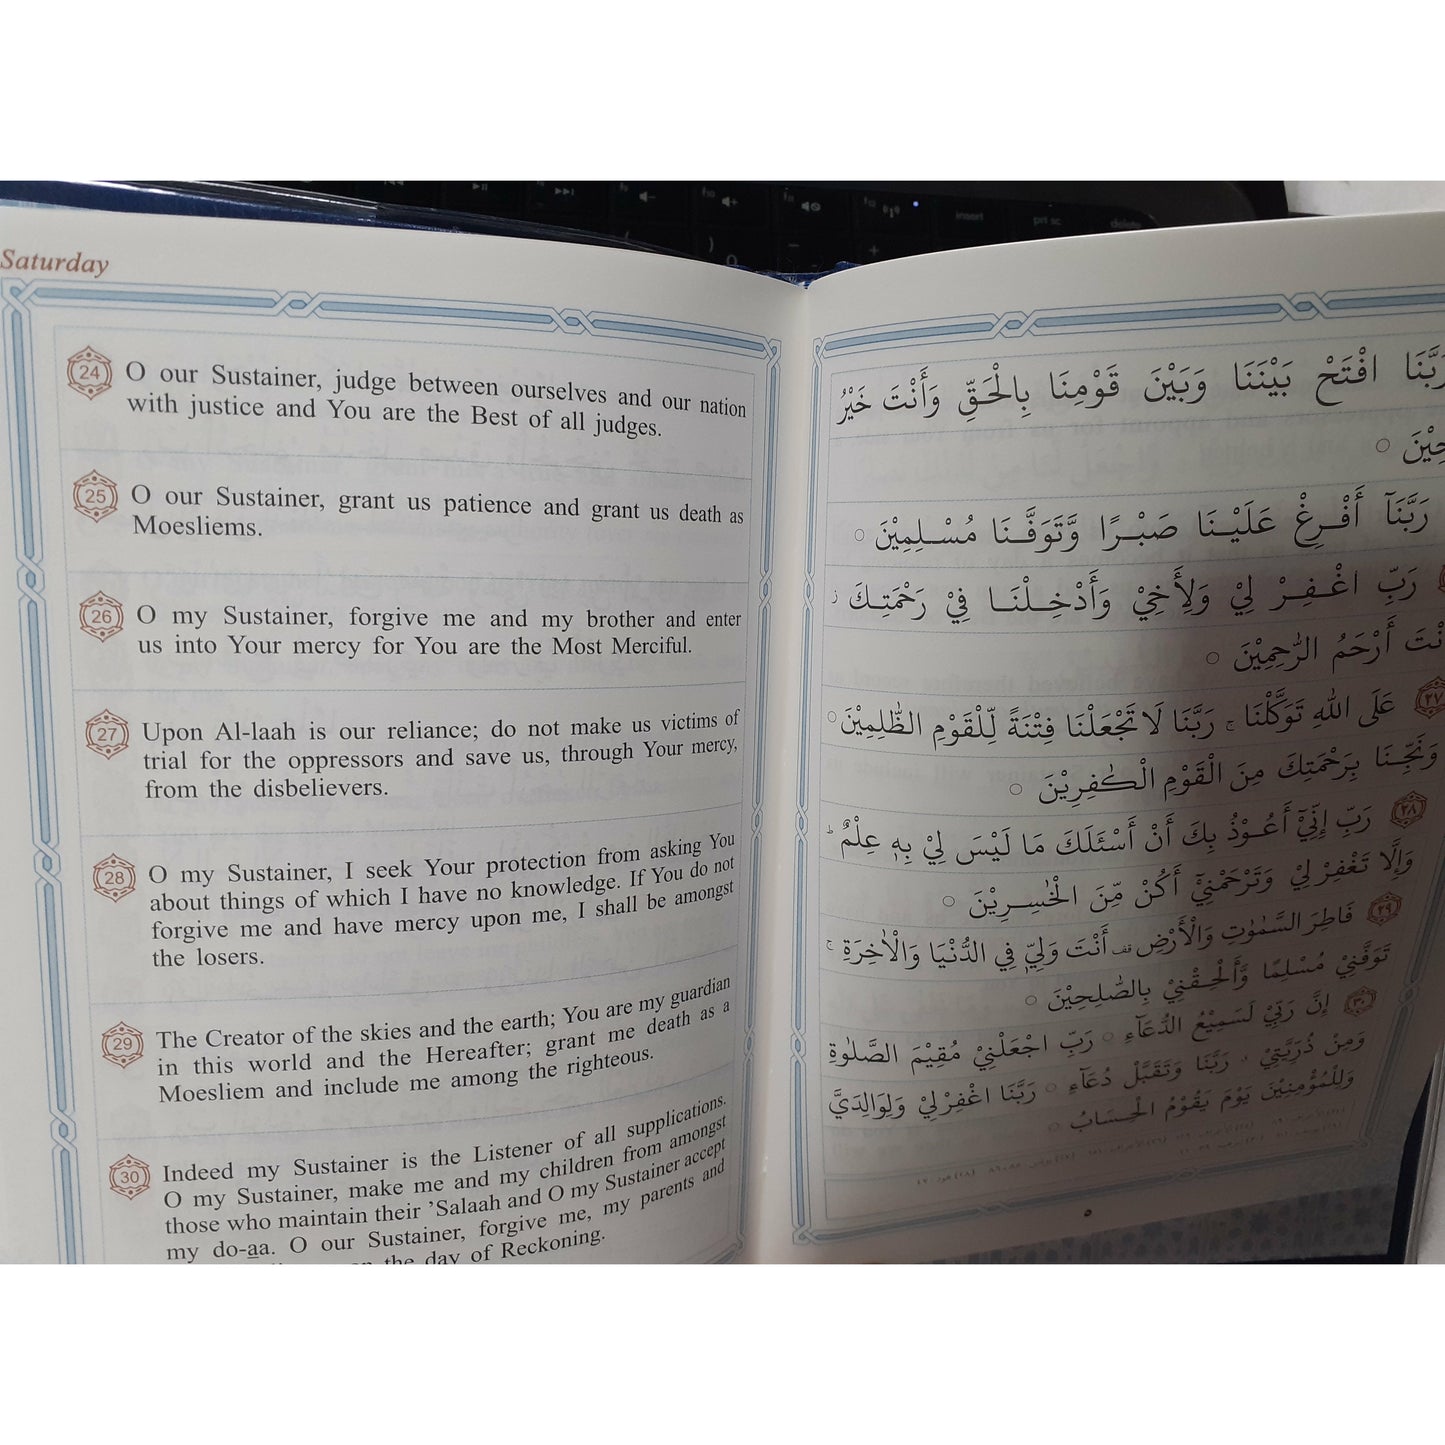 Saturday
24
O our Sustainer, judge between ourselves and our nation
with justice and You are the Best of all judges.
25
O our Sustainer, grant us patience and grant us death as
Moesliems.
26
O my Sustainer, forgive me and my brother and enter
us into Your mercy for You are the Most Merciful.
27
Upon Al-laah is our reliance; do not make us victims of
trial for the oppressors and save us, through Your mercy,
from the disbelievers.
28
O my Sustainer, I seek Your protection from asking You
about things of which I have no knowledge. If You do not
forgive me and have mercy upon me, I shall be amongst
the losers.
29
The Creator of the skies and the earth; You are my guardian
in this world and the Hereafter; grant me death as a
Moesliem and include me among the righteous.
30
Indeed my Sustainer is the Listener of all supplications.
O my Sustainer, make me and my children from amongst
those who maintain their ’Salaah and O my Sustainer accept
my do-aa. O our Sustainer, forgive me, my parents and
the day of Reckoning.
رَبَّنَا افْتَحْ بَيْنَنَا وَبَيْنَ قَوْمِنَا بِالْحَقِّ وَأَنْتَ خَيْرُ
رَبَّنَآ أَفْرِغْ عَلَيْنَا صَبْرًا وَّتَوَفَّنَا مُسْلِمِيْنَ ○
رَبِّ اغْفِرْ لِيْ وَلِأَخِيْ وَأَدْخِلْنَا فِيْ رَحْمَتِكَ ز
أَرْحَمُ الرّٰحِمِيْنَ ○
٢٧ عَلَى اللهِ تَوَكَّلْنَا ج رَبَّنَا لَا تَجْعَلْنَا فِتْنَةً لِّلْقَوْمِ الظّٰلِمِيْنَ ○
وَنَجِّنَا بِرَحْمَتِكَ مِنَ الْقَوْمِ الْكٰفِرِيْنَ ○
٢٨ رَبِّ إِنِّيْٓ أَعُوْذُ بِكَ أَنْ أَسْئَلَكَ مَا لَيْسَ لِيْ بِهٖ عِلْمٌ ط
وَإِلَّا تَغْفِرْ لِيْ وَتَرْحَمْنِيْٓ أَكُنْ مِّنَ الْخٰسِرِيْنَ ○
٢٩ فَاطِرَ السَّمٰوٰتِ وَالْأَرْضِ قف أَنْتَ وَلِيّٖ فِي الدُّنْيَا وَالْاٰخِرَةِ ج
تَوَفَّنِيْ مُسْلِمًا وَّأَلْحِقْنِيْ بِالصّٰلِحِيْنَ ○
٣٠ إِنَّ رَبِّيْ لَسَمِيْعُ الدُّعَآءِ ○ رَبِّ اجْعَلْنِيْ مُقِيْمَ الصَّلٰوةِ
وَمِنْ ذُرِّيَّتِيْ رَبَّنَا وَتَقَبَّلْ دُعَآءِ ○ رَبَّنَا اغْفِرْ لِيْ وَلِوَالِدَيَّ
وَلِلْمُؤْمِنِيْنَ يَوْمَ يَقُوْمُ الْحِسَابُ ○
٥
insert
prt sc
delete